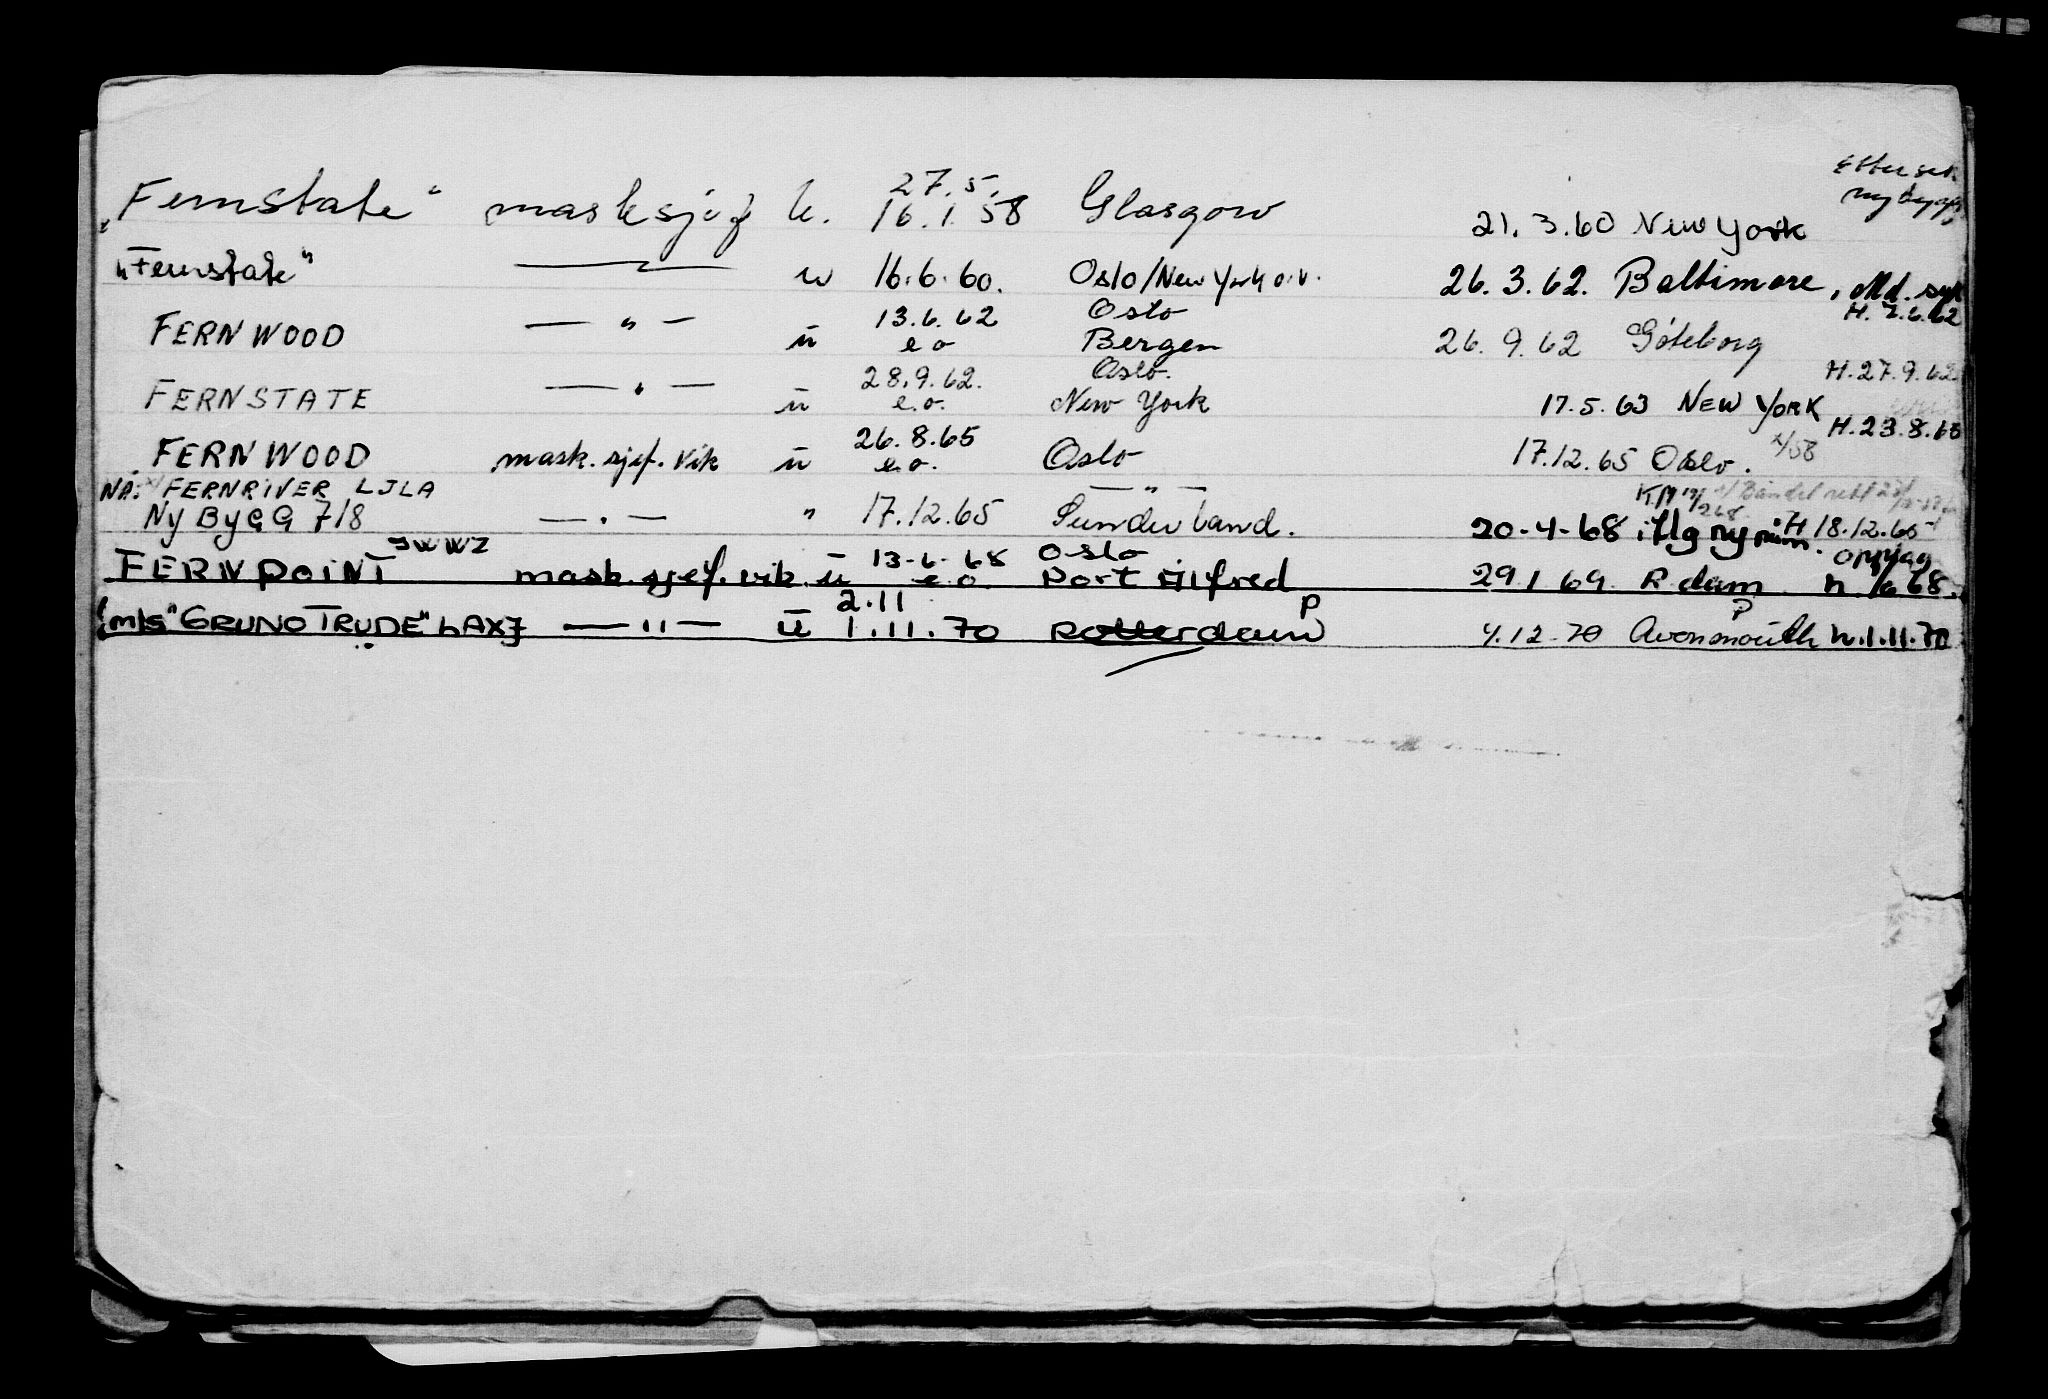 27.5. Etter sek
"Fernstate" masksjef u. 16.1.58 Glasgow 21.3.60 New York nybygg
"Fernstate" — — u 16.6.60. Oslo/New York o.v. 26.3.62. Baltimore, Md. syk
13.6.62 Oslo H. 7.6.62
FERNWOOD — " — u e o Bergen 26.9.62 Göteborg
28.9.62. Oslo. H.27.9.62
FERNSTATE — " — u e.o. New York 17.5.63 NEW YORK
26.8.65 H.23.8.65
FERNWOOD mask. sjef. vik u e.o. Oslo 17.12.65 Oslo. x/58
NÅ: FERNRIVER LJLA — " —
NyByGG 718 — " — " 17.12.65 Sunderland. 20-4-68 iflg ny mm. H 18.12.65
JWWZ 13-6-68 Oslo oppsag
FERNPOINT mask. sjef. vik u e o Port Alfred 29.1 69 R dam h. /6 68.
2.11 P P
(m/s "GRUNO TRUDE" LAXJ — " — u 1.11.70 Rotterdam 4.12.70 Avonmouth h.1.11.70